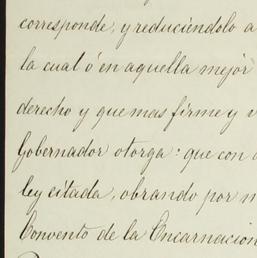 corresponde, y reduciéndolo a
la cual ó en aquella mejor
derecho y que mas firme y v
Gobernador otorga: que con
ley citada, obrando por m
Convento de la Encarnacion